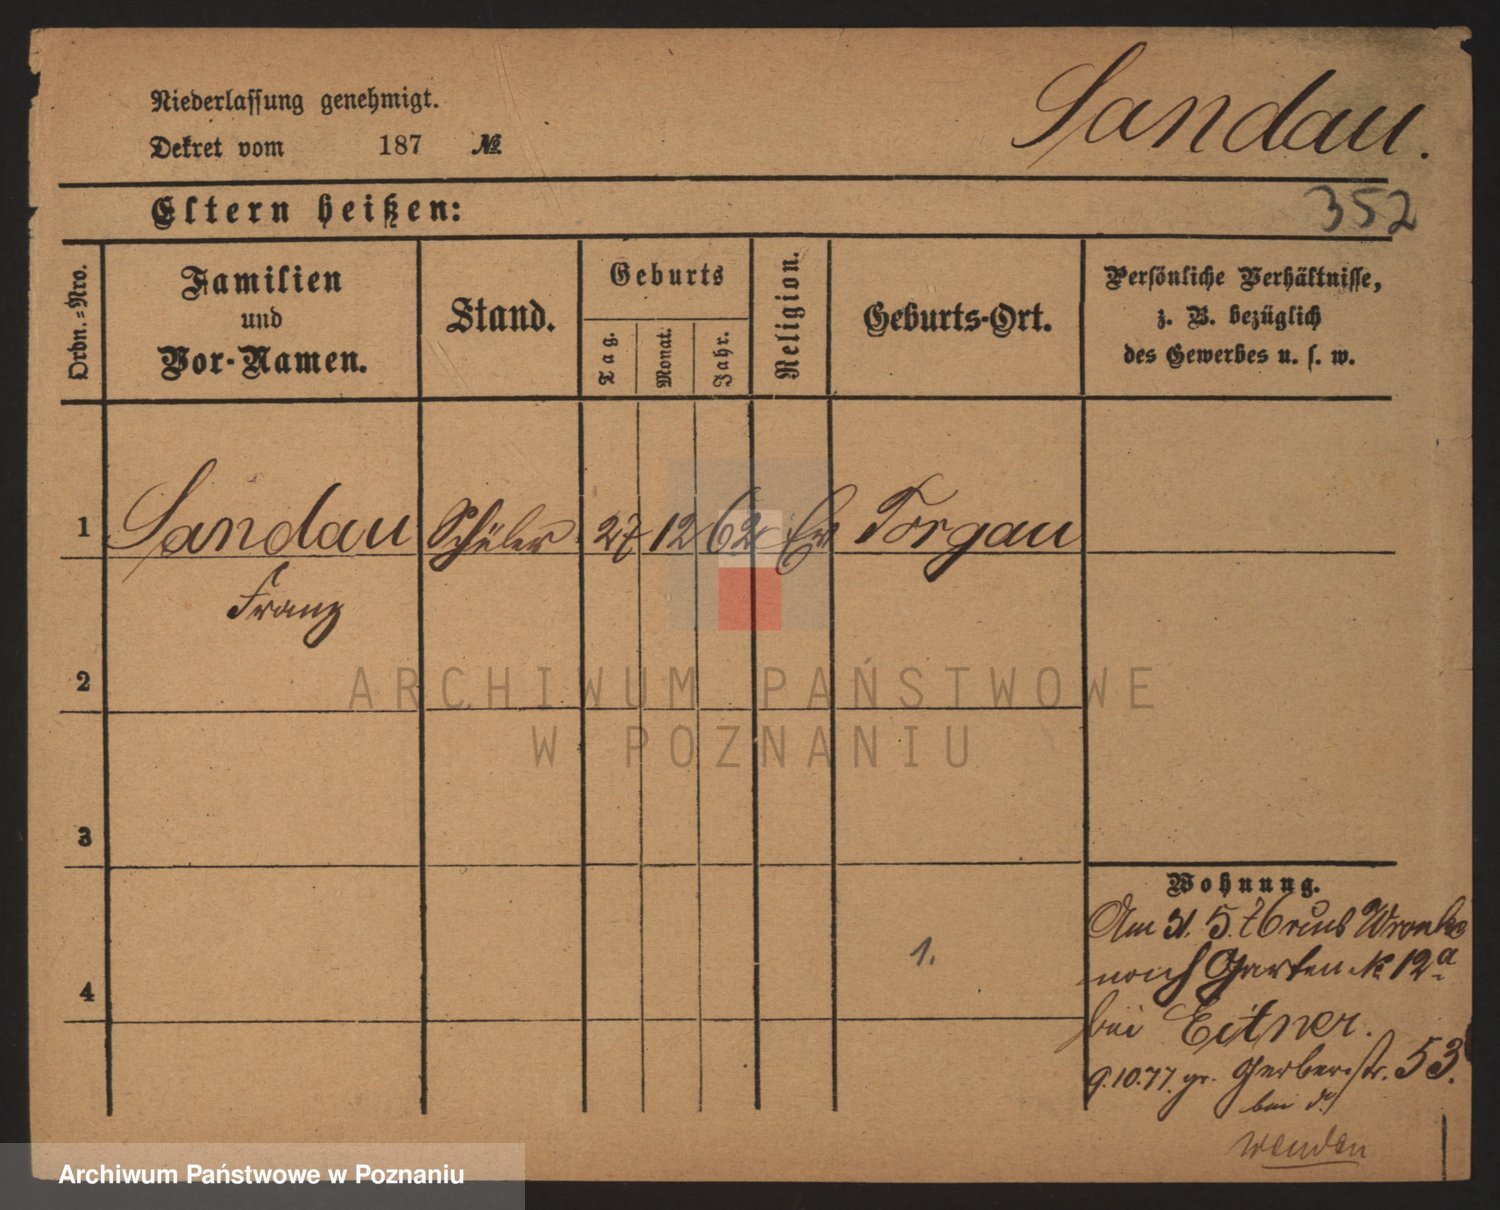 Niederlassung genehmigt.
Dekret vom 187 №
Sandau.
Eltern heißen:
352
Ordn.-Nro.
Familien
und
Vor-Namen.
Stand.
Geburts
Tag.
Monat.
Jahr.
Religion.
Geburts-Ort.
Persönliche Verhältnisse,
z. B. bezüglich
des Gewerbes u. s. w.
1 Sandau Schüler 27 12 62 Ev Torgau
Franz
2
ARCHIWUM PAŃSTWOWE
W POZNANIU
3
Wohnung.
Am 31. 5. 76 aus Wronke
nach Garten № 12a
4
1.
bei Eitner.
9.10.77. gr. Gerberstr. 53.
bei do
wenden
Archiwum Państwowe w Poznaniu